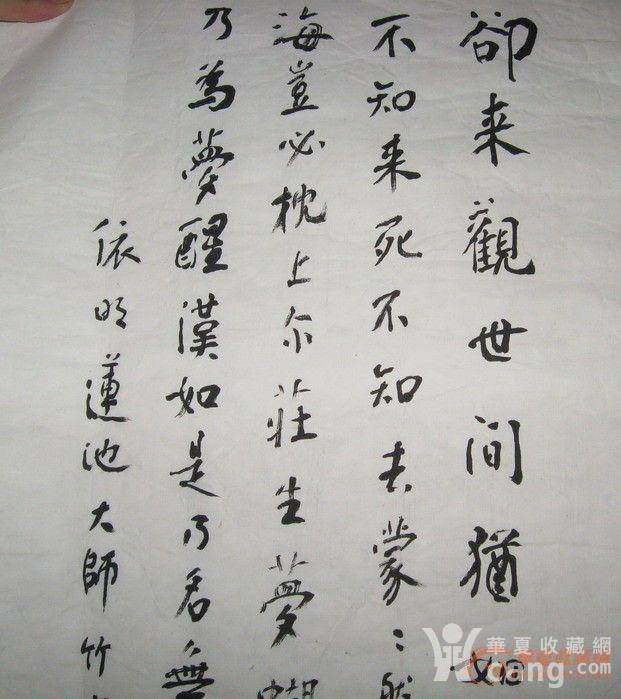 卻来觀世间猶如
不知来死不知去蒙〻然
海豈必枕上尔莊生夢蝴
乃為夢醒漢如是乃名無
依明蓮池大師竹
華夏收藏網